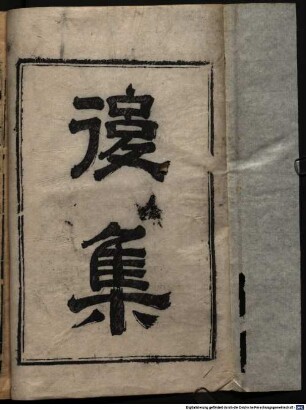 後集
Digitalisierung gefördert durch die Deutsche Forschungsgemeinschaft